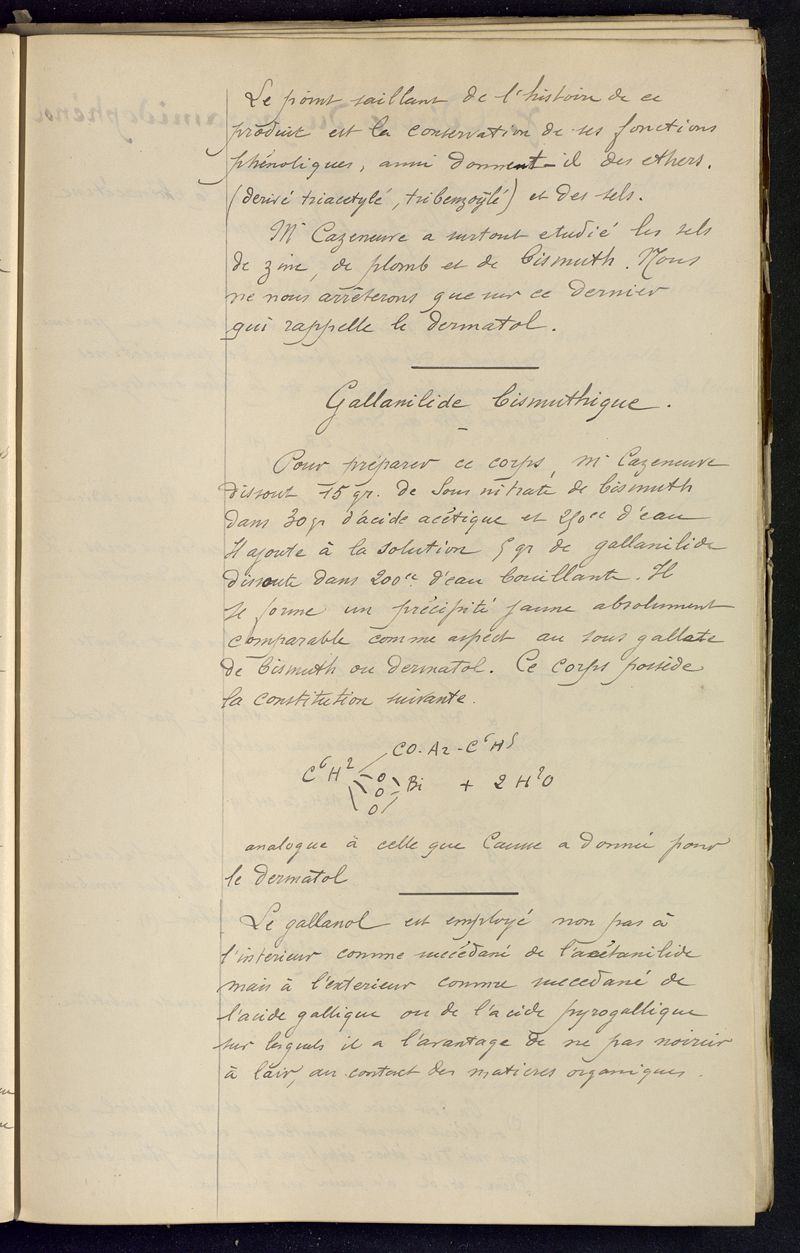 Le point saillant de l'histoire de ce
produit est la conservation de ses fonctions
phénoliques, aussi donnent-il des ethers.
(derivé triacetylé, tribenzoÿlé) et des sels.
Mr Cazeneuve a surtout etudié les sels
de zinc, de plomb et de bismuth. Nous
ne nous arrêterons que sur ce dernier
qui rappelle le dermatol.
Gallanilide bismuthique.
Pour préparer ce corps, Mr Cazeneuve
dissout 15 gr. de sous nitrate de bismuth
dans 30 gr d'acide acétique et 250cc d'eau
Il ajoute à la solution 5 gr de gallanilide
dissoute dans 200cc d'eau bouillante. Il
se forme un précipité jaune absolument
comparable comme aspect au sous gallate
de bismuth ou dermatol. Ce corps possède
la constitution suivante.
CO-Az-C6H5
C6H2 O O O Bi + 2H2O
analogue à celle que Causse a donnée pour
le dermatol
Le gallanol est employé non pas à
l'interieur comme succédané de l'acétanilide
mais à l'exterieur comme succedané de
l'acide gallique ou de l'acide pyrogallique
sur lesquels il a l'avantage de ne pas noircir
à l'air, au contact des matieres organiques.